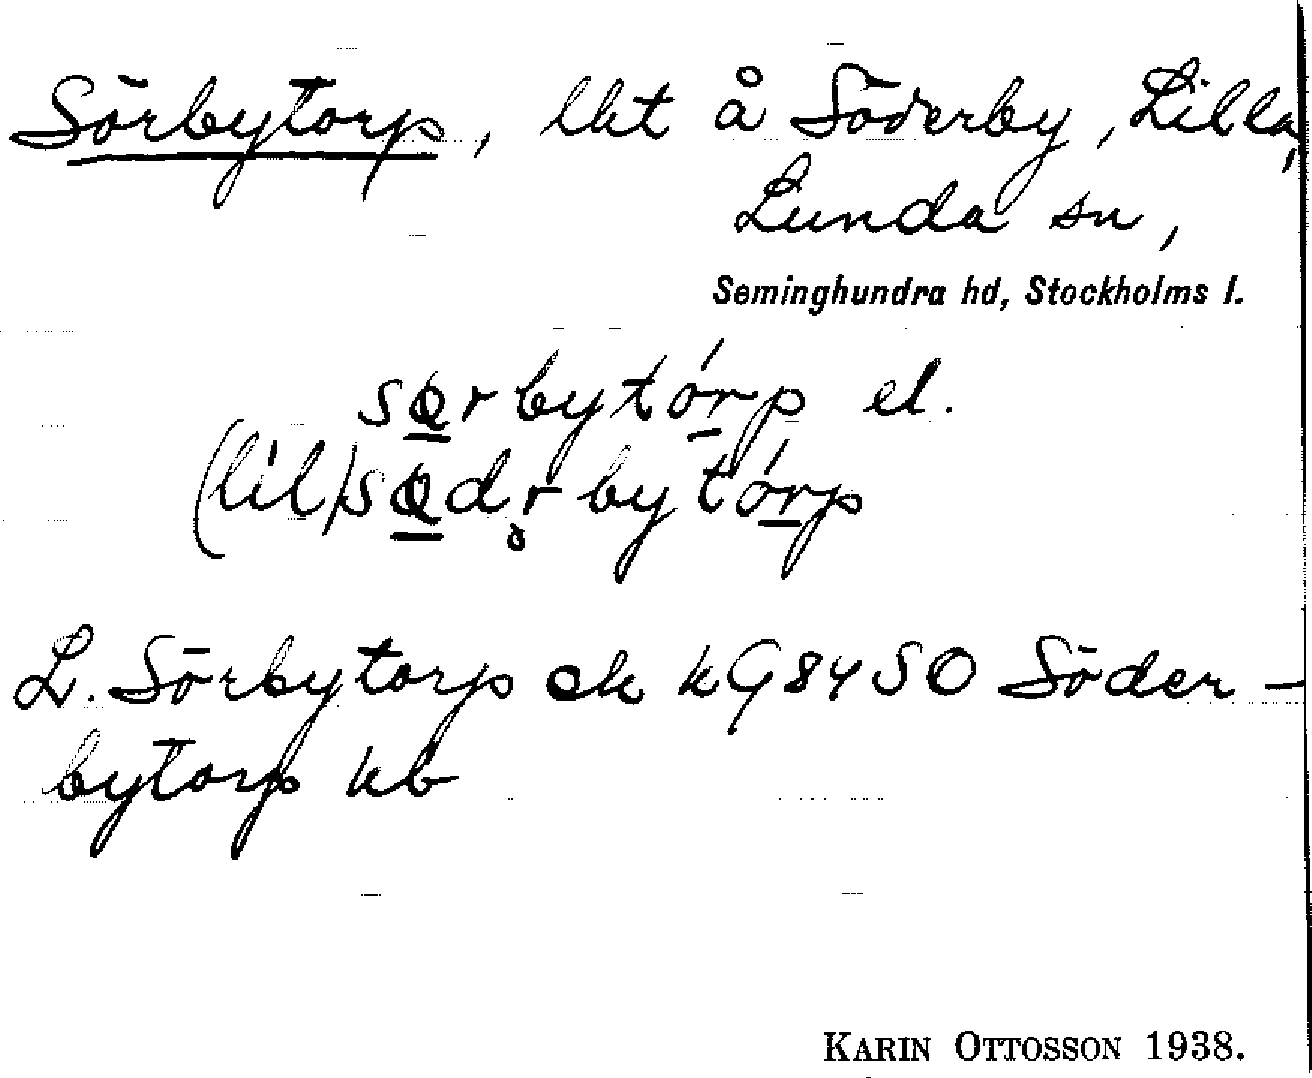 Sörbytorp, lht å Söderby, Lilla,
Lunda sn,
Seminghundra hd, Stockholms l.
sœ̱rbytór̲p el.
(lìl)sœ̱dr̥bytór̲p
L. Sörbytorp ek kG84SO Söder-
bytorp kb
KARIN OTTOSSON 1938.